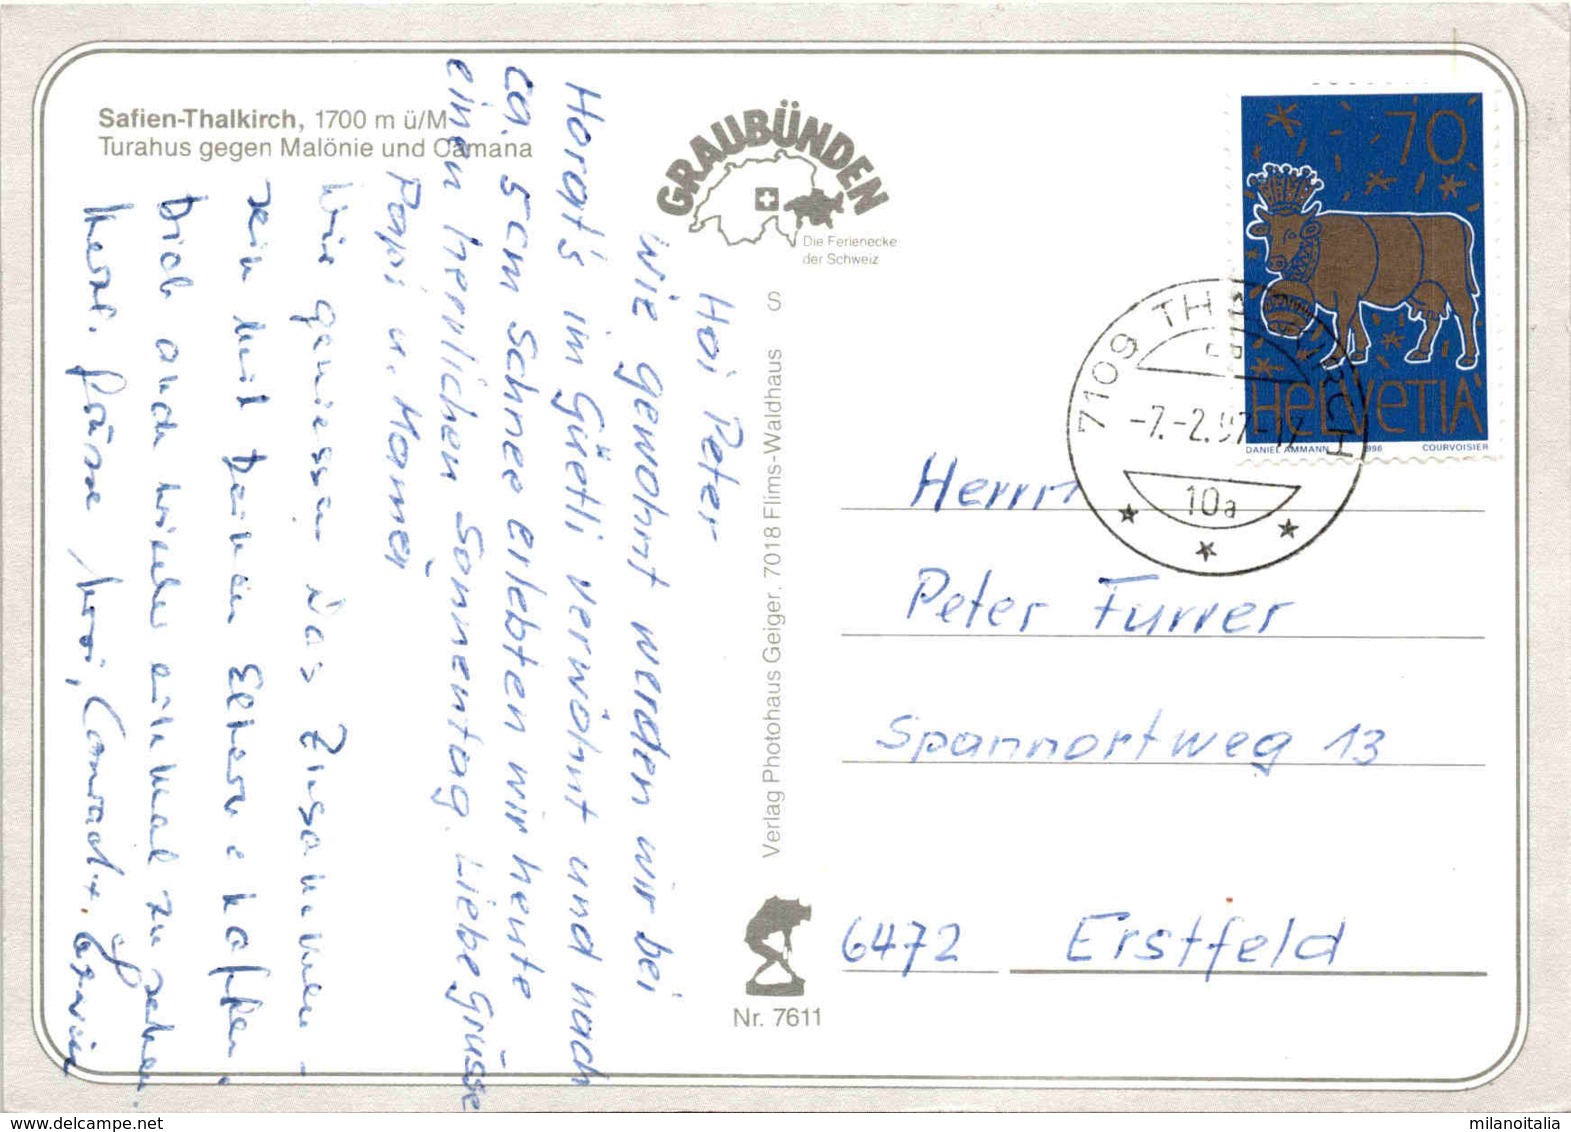 Safien-Thalkirch, 1700 m ü/M
Turahus gegen Malönie und Camana
GRAUBÜNDEN
Die Ferienecke
der Schweiz
Hoi Peter
Wie gewohnt werden wir bei
Horat's im Güetli verwöhnt und nach
ca. 5cm Schnee erlebten wir heute
einen herrlichen Sonnentag. Liebe Grüsse
Papi u. Mamei
Wir geniessen das Zusammen-
sein mit Deinen Eltern u hoffen,
Dich auch wieder einmal zu sehen.
Herzl. Grüsse
Verlag Photohaus Geiger. 7018 Flims-Waldhaus S
Nr. 7611
70
HELVETIA
DANIEL AMMANN 1996 COURVOISIER
7109 THALKIRCH
-7.-2.97-17
10a
Herrn
Peter Furrer
Spannortweg 13
6472 Erstfeld
www.delcampe.net
milanoitalia